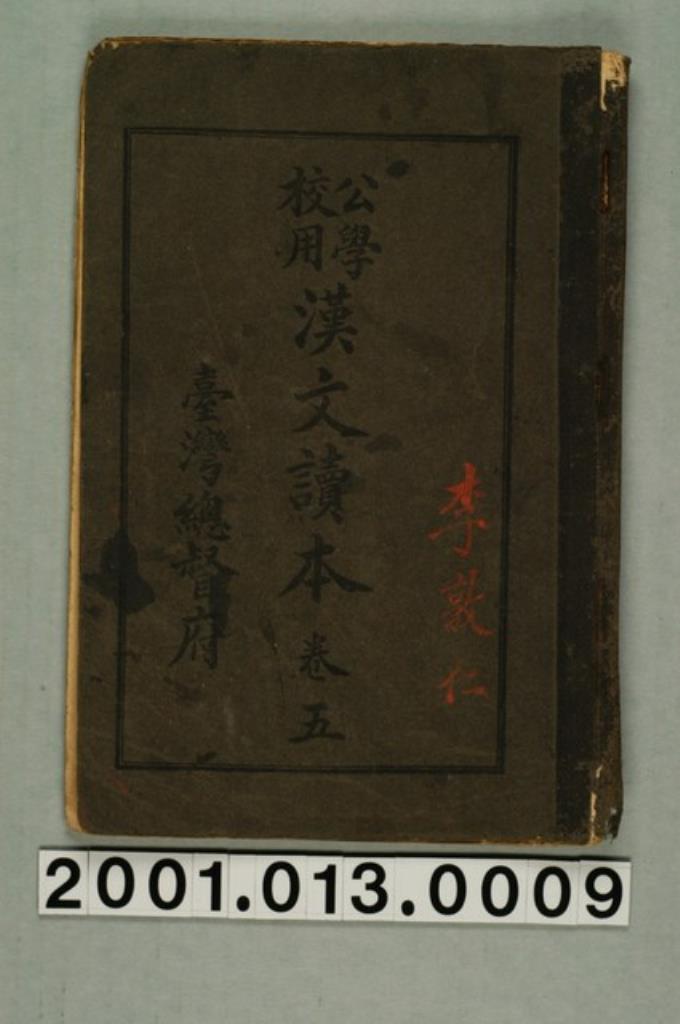 李敦仁
公學校用
漢文讀本 卷五
臺灣總督府
2001.013.0009